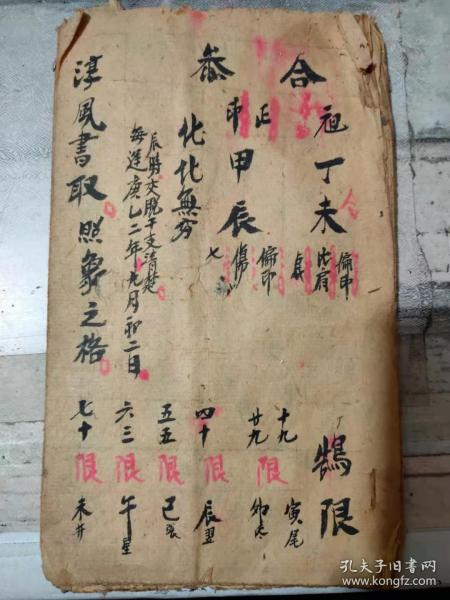 合
祖丁未
偏印
叅
正
印
甲辰
偏印
傷
七
化化無穷
辰時交脱干支清楚
每逢庚乙二年九月初二日
淳風書取照象之格
鵲限
十九
寅尾
廿九 限
四十 限 辰翌
五五 限 巳張
六三 限 午星
七十 限 未井
孔夫子旧书网
book.kongfz.com